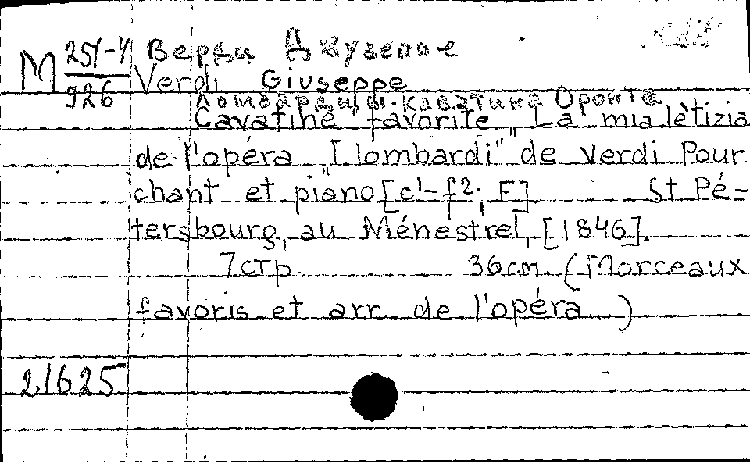 М 251-4/926 Верди Джузеппе
Verdi Giuseppe
Ломбардцы. Каватина Оронта
Cavatine favorite „La mia letizia
de l'opéra „I lombardi" de Verdi Pour
chant et piano [c¹-f²; F] St Pé-
tersbourg, au Ménestrel, [1846].
7 стр 36 cm (Morceaux
favoris et arr. de l'opéra )
21625